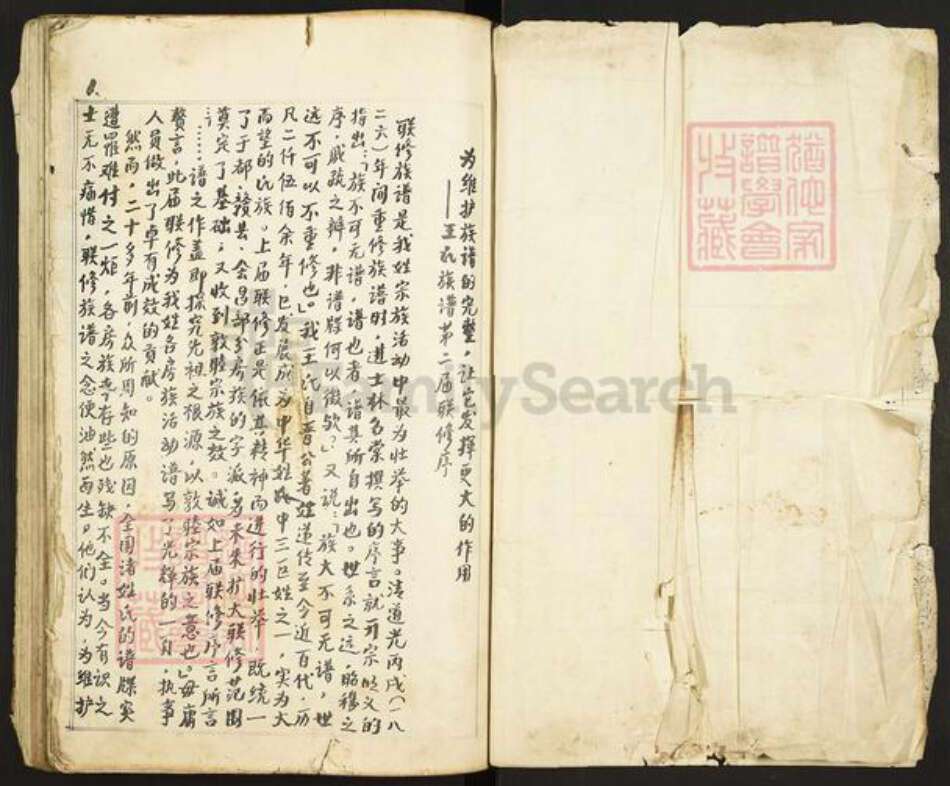 为维护族谱的完整，让它发挥更大的作用
——王氏族谱第二届联修序
联修族谱是我姓宗族活动中最为壮举的大事。清道光丙戌(一八
二六)年间重修族谱时，进士林名棠撰写的序言就开宗明义的
指出:「族不可无谱，谱也者，谱其所自出也。世系之远，昭穆之
序，戚疏之辨，非谱牒何以徵欤?」又说:「族大不可无谱，世
远不可以不重修也。」我王氏自晋公著姓递传至今近百代，历
凡二仟伍佰余年，已发展成为中华姓氏中三巨姓之一，实为大
而望的氏族。上届联修正是依其精神而进行的壮举，既统一
了于都、赣县、会昌部分房族的字派，为未来扩大联修范围
奠定了基础，又收到敦睦宗族之效。诚如上届联修序言所言
:「……谱之作盖即探究先祖之根源，以敦睦宗族之意也。」毋庸
赘言，此届联修为我姓各房族活动谱写了光辉的一页，执事
人员做出了卓有成效的贡献。
然而，二十多年前，众所周知的原因，全国诸姓氏的谱牒实
遭罹难付之一炬，各房族幸存些也残缺不全。当今有识之
士无不痛惜，联修族谱之念便油然而生。他们认为，为维护
猶他家
譜學會
收藏
FamilySearch